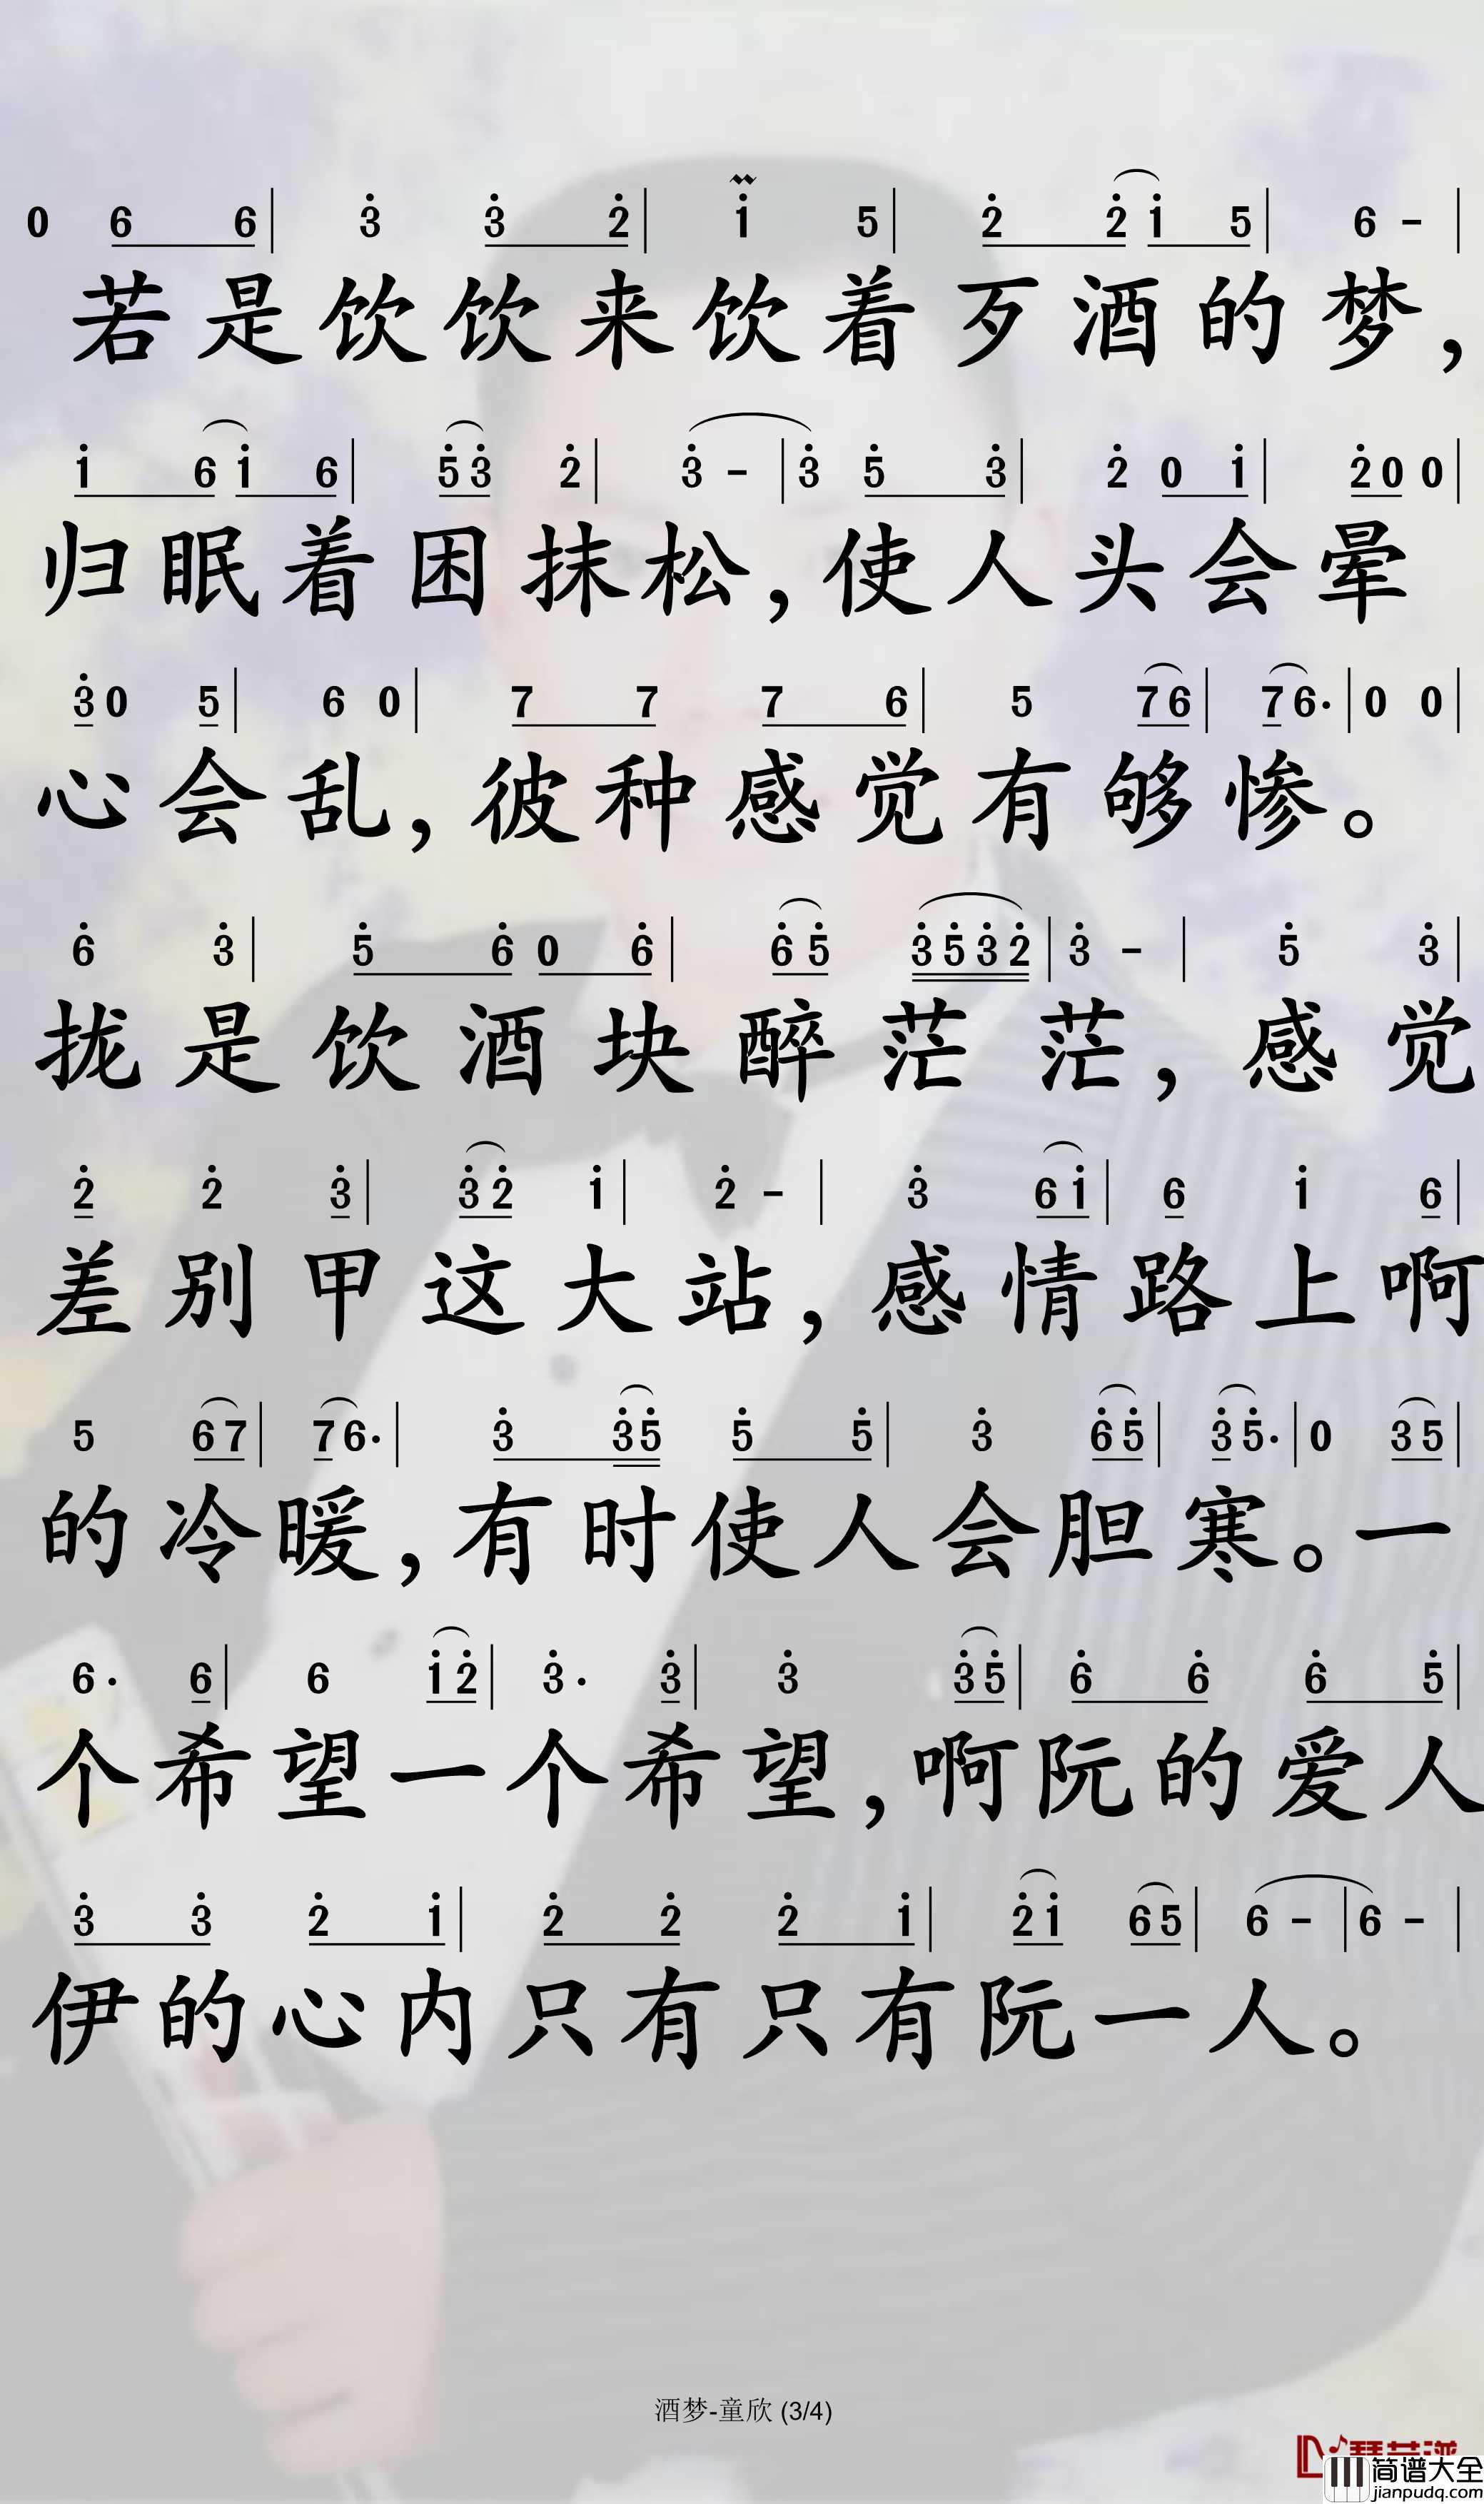 0 6 6 | 3 3 2 | 1 5 | 2 2 1 5 | 6 - |
若是饮饮来饮着歹酒的梦，
1 6 1 6 | 5 3 2 | 3 - | 3 5 3 | 2 0 1 | 2 0 0 |
归眠着困抹松，使人头会晕
3 0 5 | 6 0 | 7 7 7 6 | 5 7 6 | 7 6· | 0 0 |
心会乱，彼种感觉有够惨。
6 3 | 5 6 0 6 | 6 5 3 5 3 2 | 3 - | 5 3 |
拢是饮酒块醉茫茫，感觉
2 2 3 | 3 2 1 | 2 - | 3 6 1 | 6 1 6 |
差别甲这大站，感情路上啊
5 6 7 | 7 6· | 3 3 5 5 5 | 3 6 5 | 3 5· | 0 3 5 |
的冷暖，有时使人会胆寒。一
6· 6 | 6 1 2 | 3· 3 | 3 3 5 | 6 6 6 5 |
个希望一个希望，啊阮的爱人
3 3 2 1 | 2 2 2 1 | 2 1 6 5 | 6 - | 6 - |
伊的心内只有只有阮一人。
酒梦-童欣 (3/4)
简谱大全
jianpudq.com